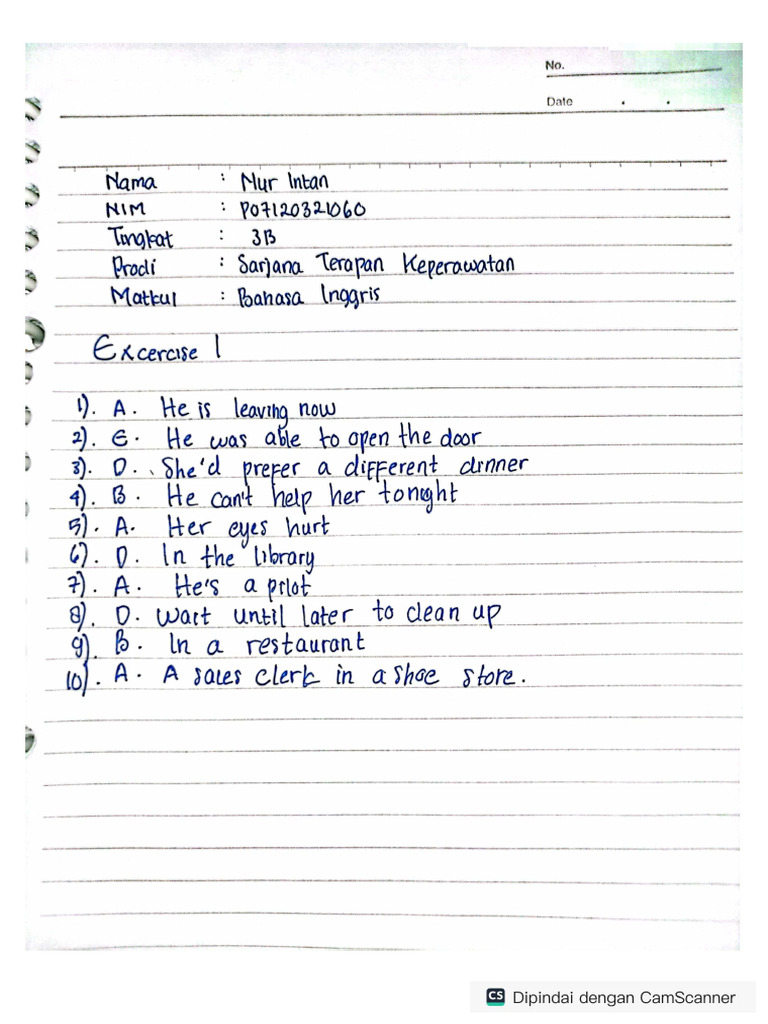 No.
Date . .
Nama : Nur Intan
NIM : P07120321060
Tingkat : 3B
Prodi : Sarjana Terapan Keperawatan
Matkul : Bahasa Inggris
Excercise 1
1). A. He is leaving now
2). E. He was able to open the door
3). D. She'd prefer a different dinner
4). B. He can't help her tonight
5). A. Her eyes hurt
6). D. In the library
7). A. He's a pilot
8). D. Wait until later to clean up
9). B. In a restaurant
10). A. A sales clerk in a shoe store.
CS Dipindai dengan CamScanner